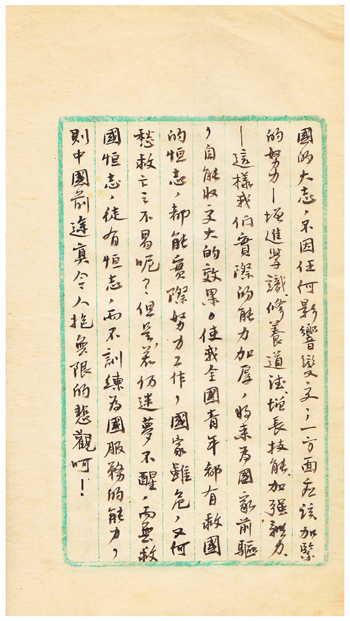 國的大志，不因任何影響變更；一方面應該加緊
的努力—增進學識修養道德增長技能加强魄力
—這樣我们實際的能力加厚，將來為國家前驅
，自能收更大的效果。使我全國青年都有救國
的恒志，都能實際努力工作，國家雖危，又何
愁救亡之不易呢？但是若仍迷夢不醒，而無救
國恒志，徒有恒志，而不訓練為國服務的能力，
則中國前途真令人抱無限的悲觀呵！